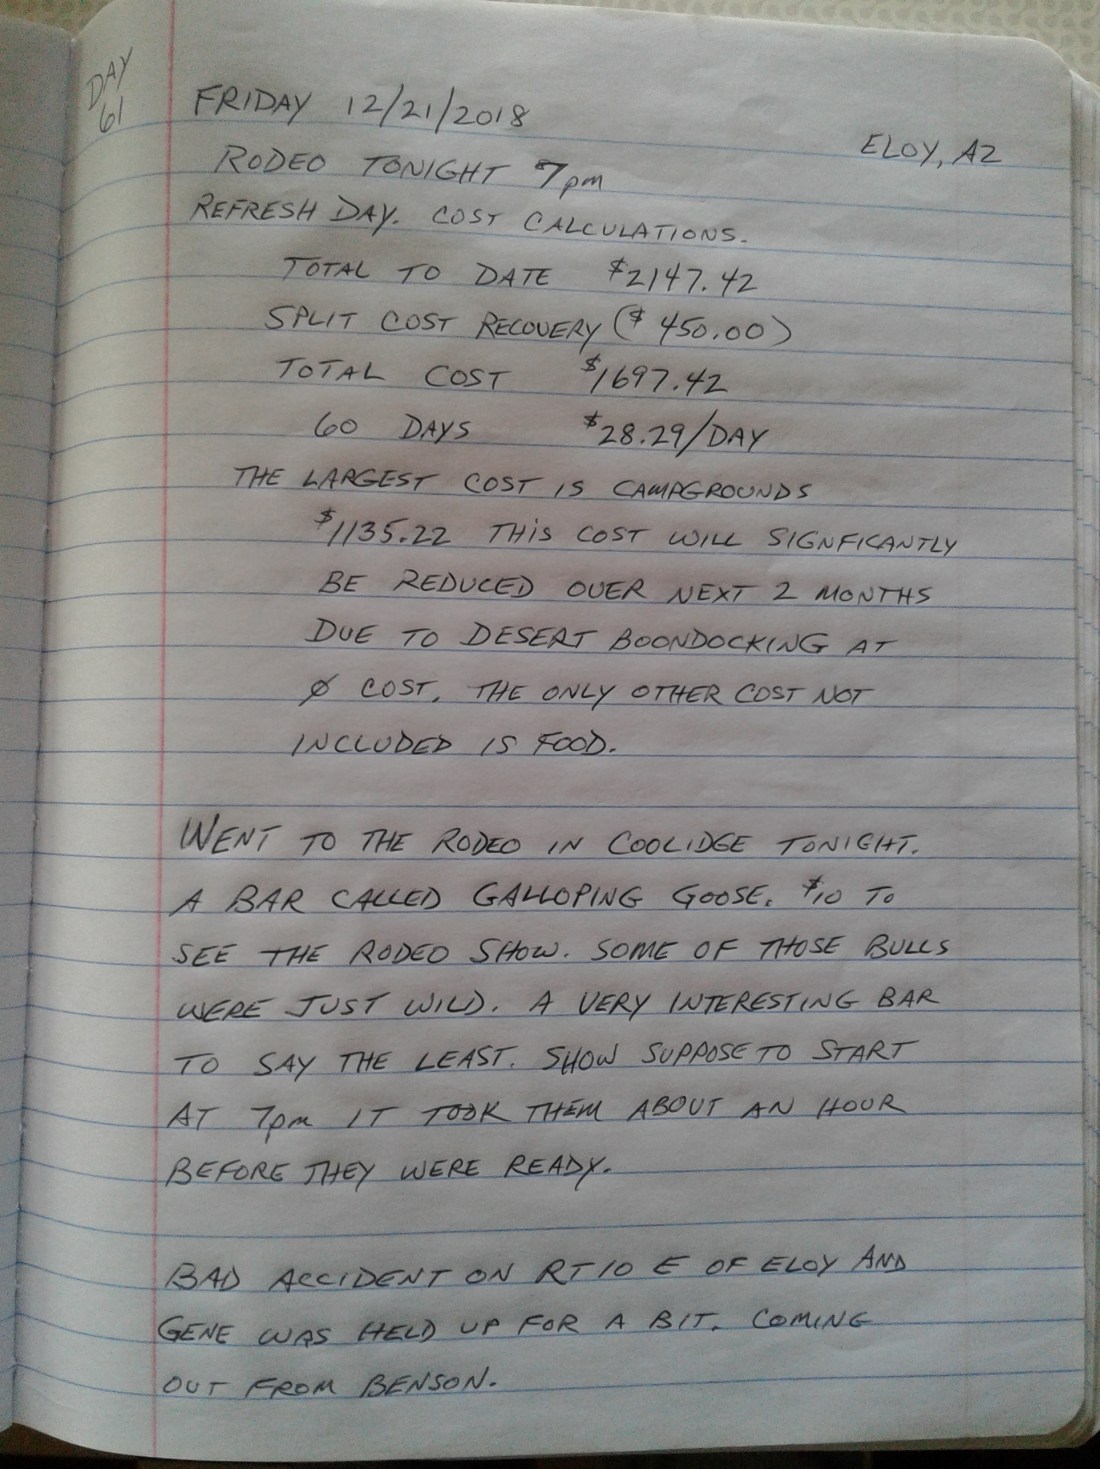 DAY
61
FRIDAY 12/21/2018
ELOY, AZ
RODEO TONIGHT 7pm
REFRESH DAY. COST CALCULATIONS.
TOTAL TO DATE $2147.42
SPLIT COST RECOVERY ($450.00)
TOTAL COST $1697.42
60 DAYS $28.29/DAY
THE LARGEST COST IS CAMPGROUNDS
$1135.22 THIS COST WILL SIGNFICANTLY
BE REDUCED OVER NEXT 2 MONTHS
DUE TO DESERT BOONDOCKING AT
Ø COST. THE ONLY OTHER COST NOT
INCLUDED IS FOOD.
WENT TO THE RODEO IN COOLIDGE TONIGHT.
A BAR CALLED GALLOPING GOOSE. $10 TO
SEE THE RODEO SHOW. SOME OF THOSE BULLS
WERE JUST WILD. A VERY INTERESTING BAR
TO SAY THE LEAST. SHOW SUPPOSE TO START
AT 7pm IT TOOK THEM ABOUT AN HOUR
BEFORE THEY WERE READY.
BAD ACCIDENT ON RT 10 E OF ELOY AND
GENE WAS HELD UP FOR A BIT. COMING
OUT FROM BENSON.